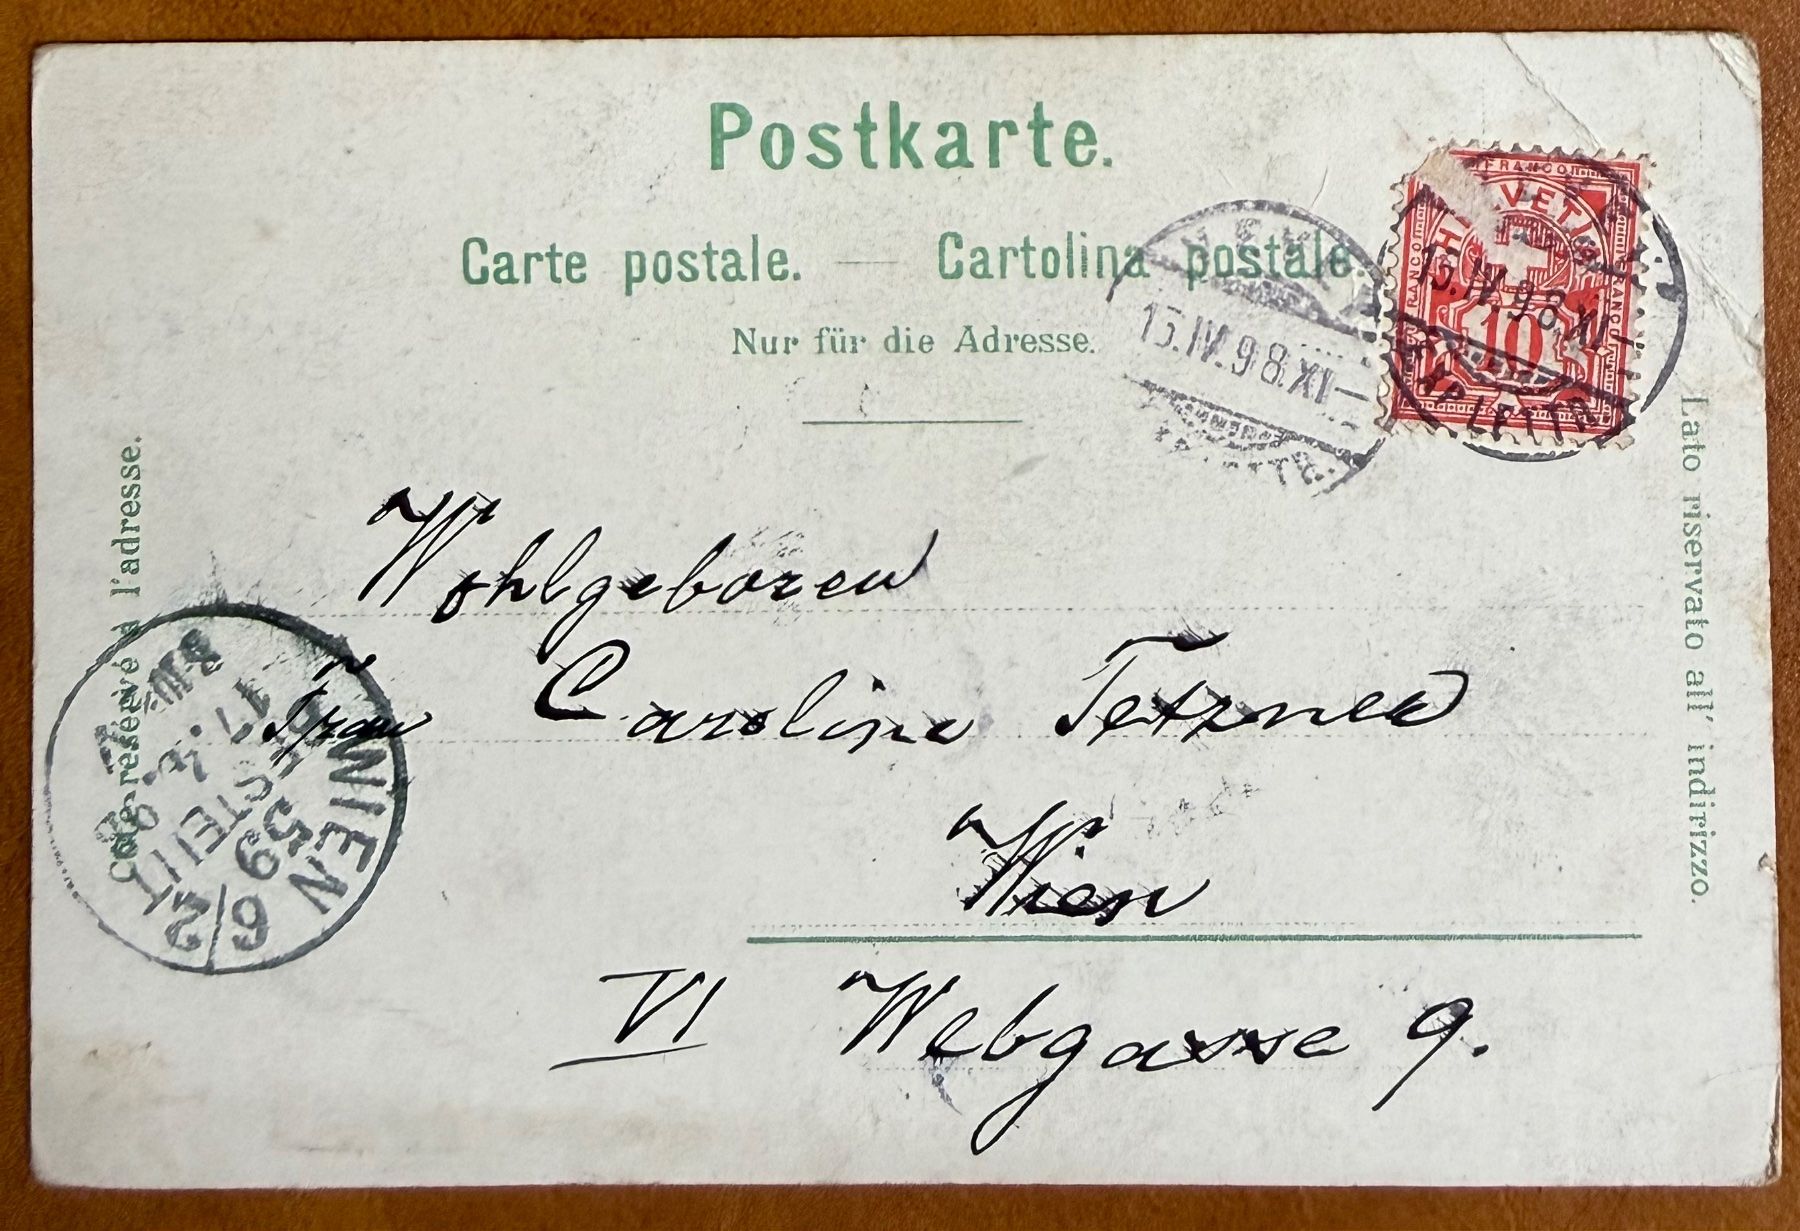 Postkarte.
Carte postale. — Cartolina postale.
Nur für die Adresse.
FRANCO
HELVETIA
FRANCO
FRANCO
10
15.IV.98.XI-
15.IV.98.XI-
Côté réservé à l'adresse.
Lato riservato all' indirizzo.
Wohlgeboren
Frau Caroline Tetzner
Wien
VI Webgasse 9.
WIEN 6/2
59
BESTELLT
17. 4. 98